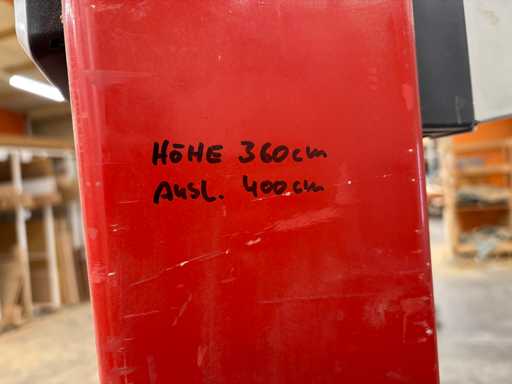 HÖHE 360cm
AUSL. 400cm